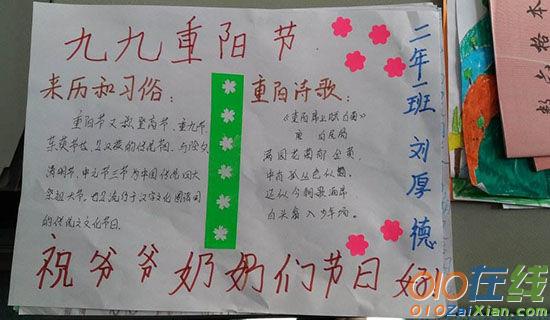 九九重阳节
来历和习俗:
重阳节又叙登高节、重九节、
茱萸节也,是汉族的传统节日,与除夕、
清明节、中元节三节为中国传统四大
祭祖大节。也是流行于汉字文化圈诸国
的传统之文化节日。
重阳诗歌:
《重阳席上赋白菊》
唐 白居易
满园花菊郁金黄,
中有孤丛色似霜。
还似今朝歌酒席,
白头翁入少年场。
二年一班 刘厚德
祝爷爷奶奶们节日好
格本
010在线
010ZaiXian.com